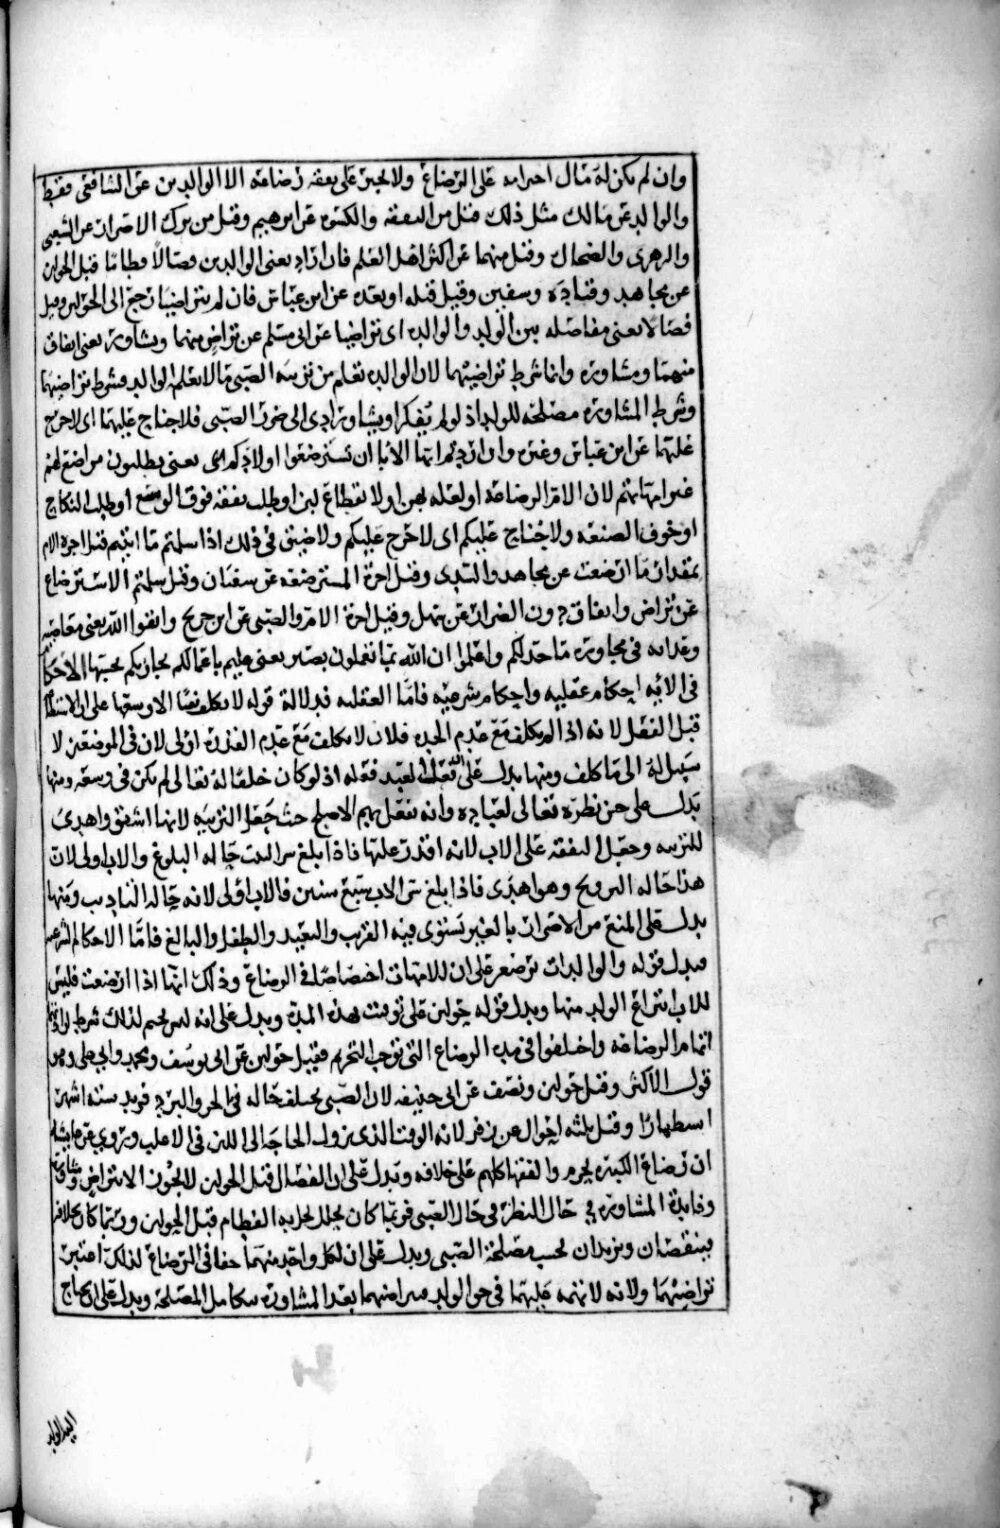 وان لم يكن له مال اجبرا به على الرضاع ولا يجبر على نفقه رضاعه الا الوالدين عن الشافعي فقط
والوالد عن مالك مثل ذلك قيل من النفقه والكسوة عن ابرهيم وقيل من ترك الاضرار عن الشعبي
والزهري والضحاك وقيل منهما عن اكثر اهل العلم فان ارادا يعني الوالدين فصالا فطاما قبل الحولين
عن مجاهد وقتادة وسفين وقيل قبله او بعده عن ابن عباس فان لم يتراضيا رجع الى الحولين وقيل
فصالا يعني مفاصله بين الولد والوالده اي تراضيا عن ابي مسلم عن تراض منهما وتشاور يعني اتفاق
منهما ومشاوره وانما شرط تراضيهما لان الوالده تعلم من تربيه الصبي ما لا يعلم الوالد فشرط تراضيهما
وشرط المشاوره مصلحه للولد اذ لو لم يفكرا ويتشاورا ادى الى ضرر الصبي فلا جناح عليهما اي لا حرج
عليهما عن ابن عباس وغيره وان اردتم ايها الآبا ان تسترضعوا اولادكم اي يعني تطلبون مراضع لهم
غير امهاتهم لان الام الرضاعه او لعله بهن او لانقطاع لبن او طلب نفقه فوق الوسع او طلب النكاح
او خوف الضيعه ولا جناح عليكم اي لا حرج عليكم ولا ضيق في ذلك اذا سلمتم ما اتيتم قيل اجره الام
بمقدار ما ارضعت عن مجاهد والسدي وقيل اجرة المسترضعه عن سفيان وقيل سلمتم الاسترضاع
عن تراض واتفاق دون الضرار وقيل اجرة الام والصبي عن ابن جريج واتقوا الله يعني معاصيه
وعذابه في مجاوزه ما حد لكم واعلموا ان الله بما تعملون بصير يعني عليم باعمالكم يجازيكم بحسبها الاحكام
في الايه احكام عقليه واحكام شرعيه فاما العقليه فدلالة قوله لا تكلف نفسا الا وسعها على ان الاستطاعه
قبل الفعل لانه اذا لم يكلف مع عدم الجده فلان لا يكلف مع عدم القدره اولى لان في الموضعين لا
سبيل له الى ما كلف ومنها يدل على ان فعل العبد فعله اذ لو كان خلقا له تعالى لم يكن في وسعه ومنها
يدل على حسن نظره تعالى لعباده وانه يفعل بهم الاصلح حيث جعل التربيه لانها اشفق واهدى
للتربيه وجعل النفقه على الاب لانه اقدر عليها فاذا بلغ البنت حاله البلوغ والاب اولى لان
هذا حاله التزويج وهو اهدى فاذا بلغ سبع سنين فالاب اولى لانه حاله التاديب ومنها
يدل على المنع من الاضرار بالغير يستوى فيه القريب والبعيد والطفل والبالغ فاما الاحكام الشرعيه
فيدل قوله والوالدات يرضعن على ان للامهات اختصاصا في الرضاع وذلك انها اذا ارضعت فليس
للاب انتزاع الولد منها ويدل قوله حولين على توقيت هذه المدة ويدل على انه ليس بحتم لذلك شرط لمن اراد
اتمام الرضاعه واختلفوا في مده الرضاع التي توجب التحريم فقيل حولين عن ابي يوسف ومحمد وابي علي وهو
قول الاكثر وقيل حولين ونصف عن ابي حنيفه لان الصبي يختلف حاله في الحر والبرد فزيد ستة اشهر
استظهارا وقيل ثلثة احوال عن زفر لانه الوقت الذي تزول الحاجه الى اللبن في الاغلب وتروي عن عايشه
ان رضاع الكبير يحرم والفقها كلهم على خلافه وتدل على ان الفصال قبل الحولين لا يجوز الا بتراض وتشاور
وفايدة المشاوره في حال النظر في حال الصبي فربما كان يحتمل الفطام قبل الحولين وربما كان بخلافه
فينقصان ويزيدان بحسب مصلحة الصبي ويدل على ان لكل واحد منهما حقا في الرضاع لذلك اعتبر
تراضيهما ولانه لا تهمه عليهما في حق الولد فبتراضيهما بعد المشاوره تتكامل المصلحة ويدل على ان يحتاج
اليه الولد